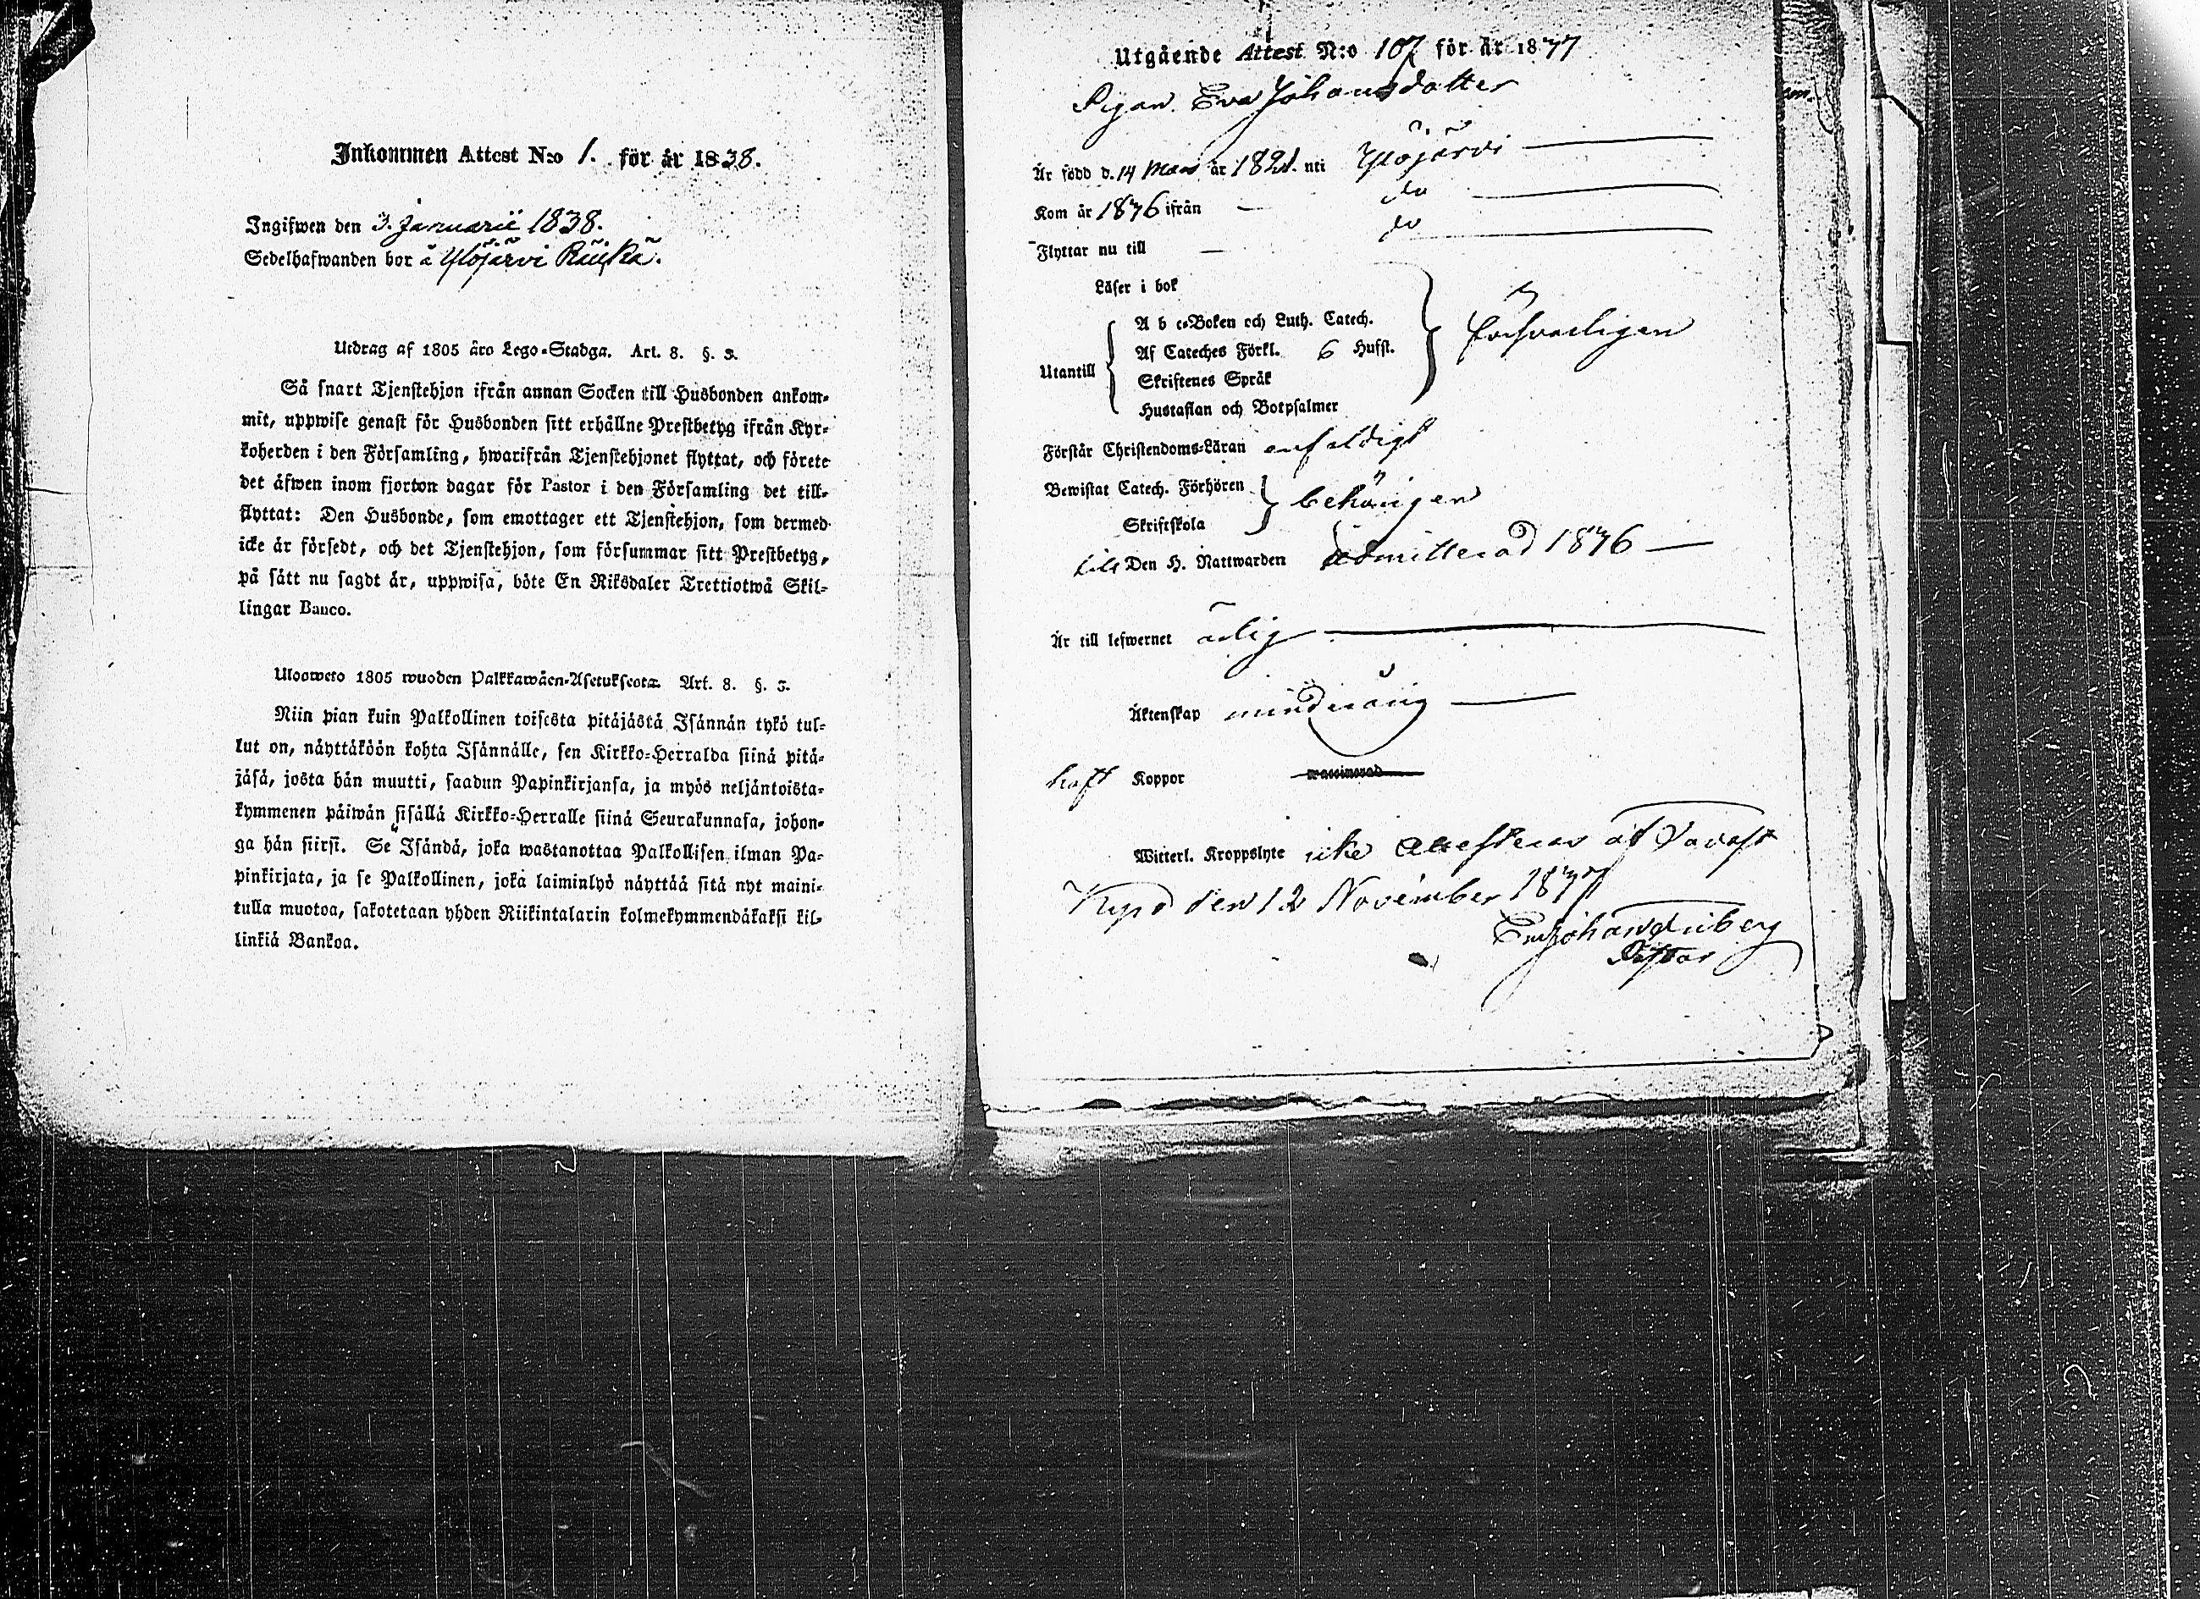 Inkommen Attest N:o 1. för år 1838.
Ingifwen den 3. Januarii 1838.
Sedelhafwanden bor å Ylöjärvi
Utdrag af 1805 års Lego-Stadga. Art. 8. §. 3.
Så snart Tjenstehjon ifrån annan Socken till Husbonden ankom-
mit, uppwise genast för Husbonden sitt erhållne Prestbetyg ifrån Kyr-
koherden i den Församling, hwarifrån Tjenstehjonet flyttat, och förete
det äfwen inom fjorton dagar för Pastor i den Församling det till-
flyttat: Den Husbonde, som emottager ett Tjenstehjon, som dermed
icke är försedt, och det Tjenstehjon, som försummar sitt Prestbetyg,
på sätt nu sagdt är, uppwisa, böte En Riksdaler Trettiotwå Skil-
lingar Banco.
Ulosweto 1805 wuoden Palkkawäen-Asetuksesta. Art. 8. §. 3.
Niin pian kuin Palkollinen toisesta pitäjästä Isännän tykö tul-
lut on, näyttäköön kohta Isännälle, sen Kirkko-Herralda siinä pitä-
jäsä, josta hän muutti, saadun Papinkirjansa, ja myös neljäntoista-
kymmenen päiwän sisällä Kirkko-Herralle siinä Seurakunnasa, johon-
ga hän siirsi. Se Isändä, joka wastanottaa Palkollisen ilman Pa-
pinkirjata, ja se Palkollinen, joka laiminlyö näyttää sitä nyt maini-
tulla muotoa, sakotetaan yhden Riikintalarin kolmekymmendäkaksi kil-
linkiä Bankoa.
Utgående Attest N:o 107 för år 1837
Pigan Eva Johansdotter
Är född d. 14 Mars år 1821. uti Ylöjärvi
Kom år 1836 ifrån — do
Flyttar nu till — do
Läser i bok
Utantill
A b c-Boken och Luth. Catech.
Af Cateches Förkl. 6 Hufst.
Skriftenes Språk
Hustaflan och Botpsalmer
försvarligen
Förstår Christendoms-Läran enfaldigt
Bewistat Catech. Förhören
Skriftskola
behörigen
till Den H. Nattwarden admitterad 1836
Är till lefwernet ärlig
Äktenskap minderårig
haft Koppor
Witterl. Kroppslyte icke attesteras af Tavast
Kyrö den 12 November 1837
Pastor